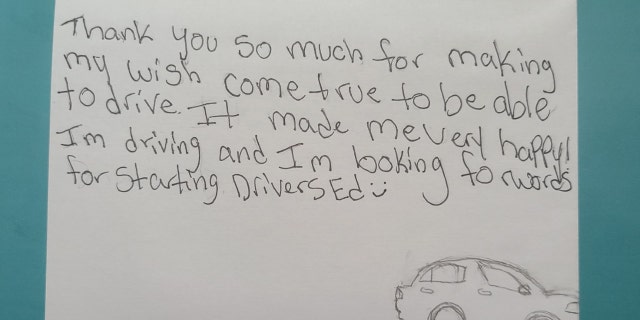 Thank you so much for making
my wish come true to be able
to drive. It made me very happy!
Im driving and Im looking forwords
for Starting Drivers Ed